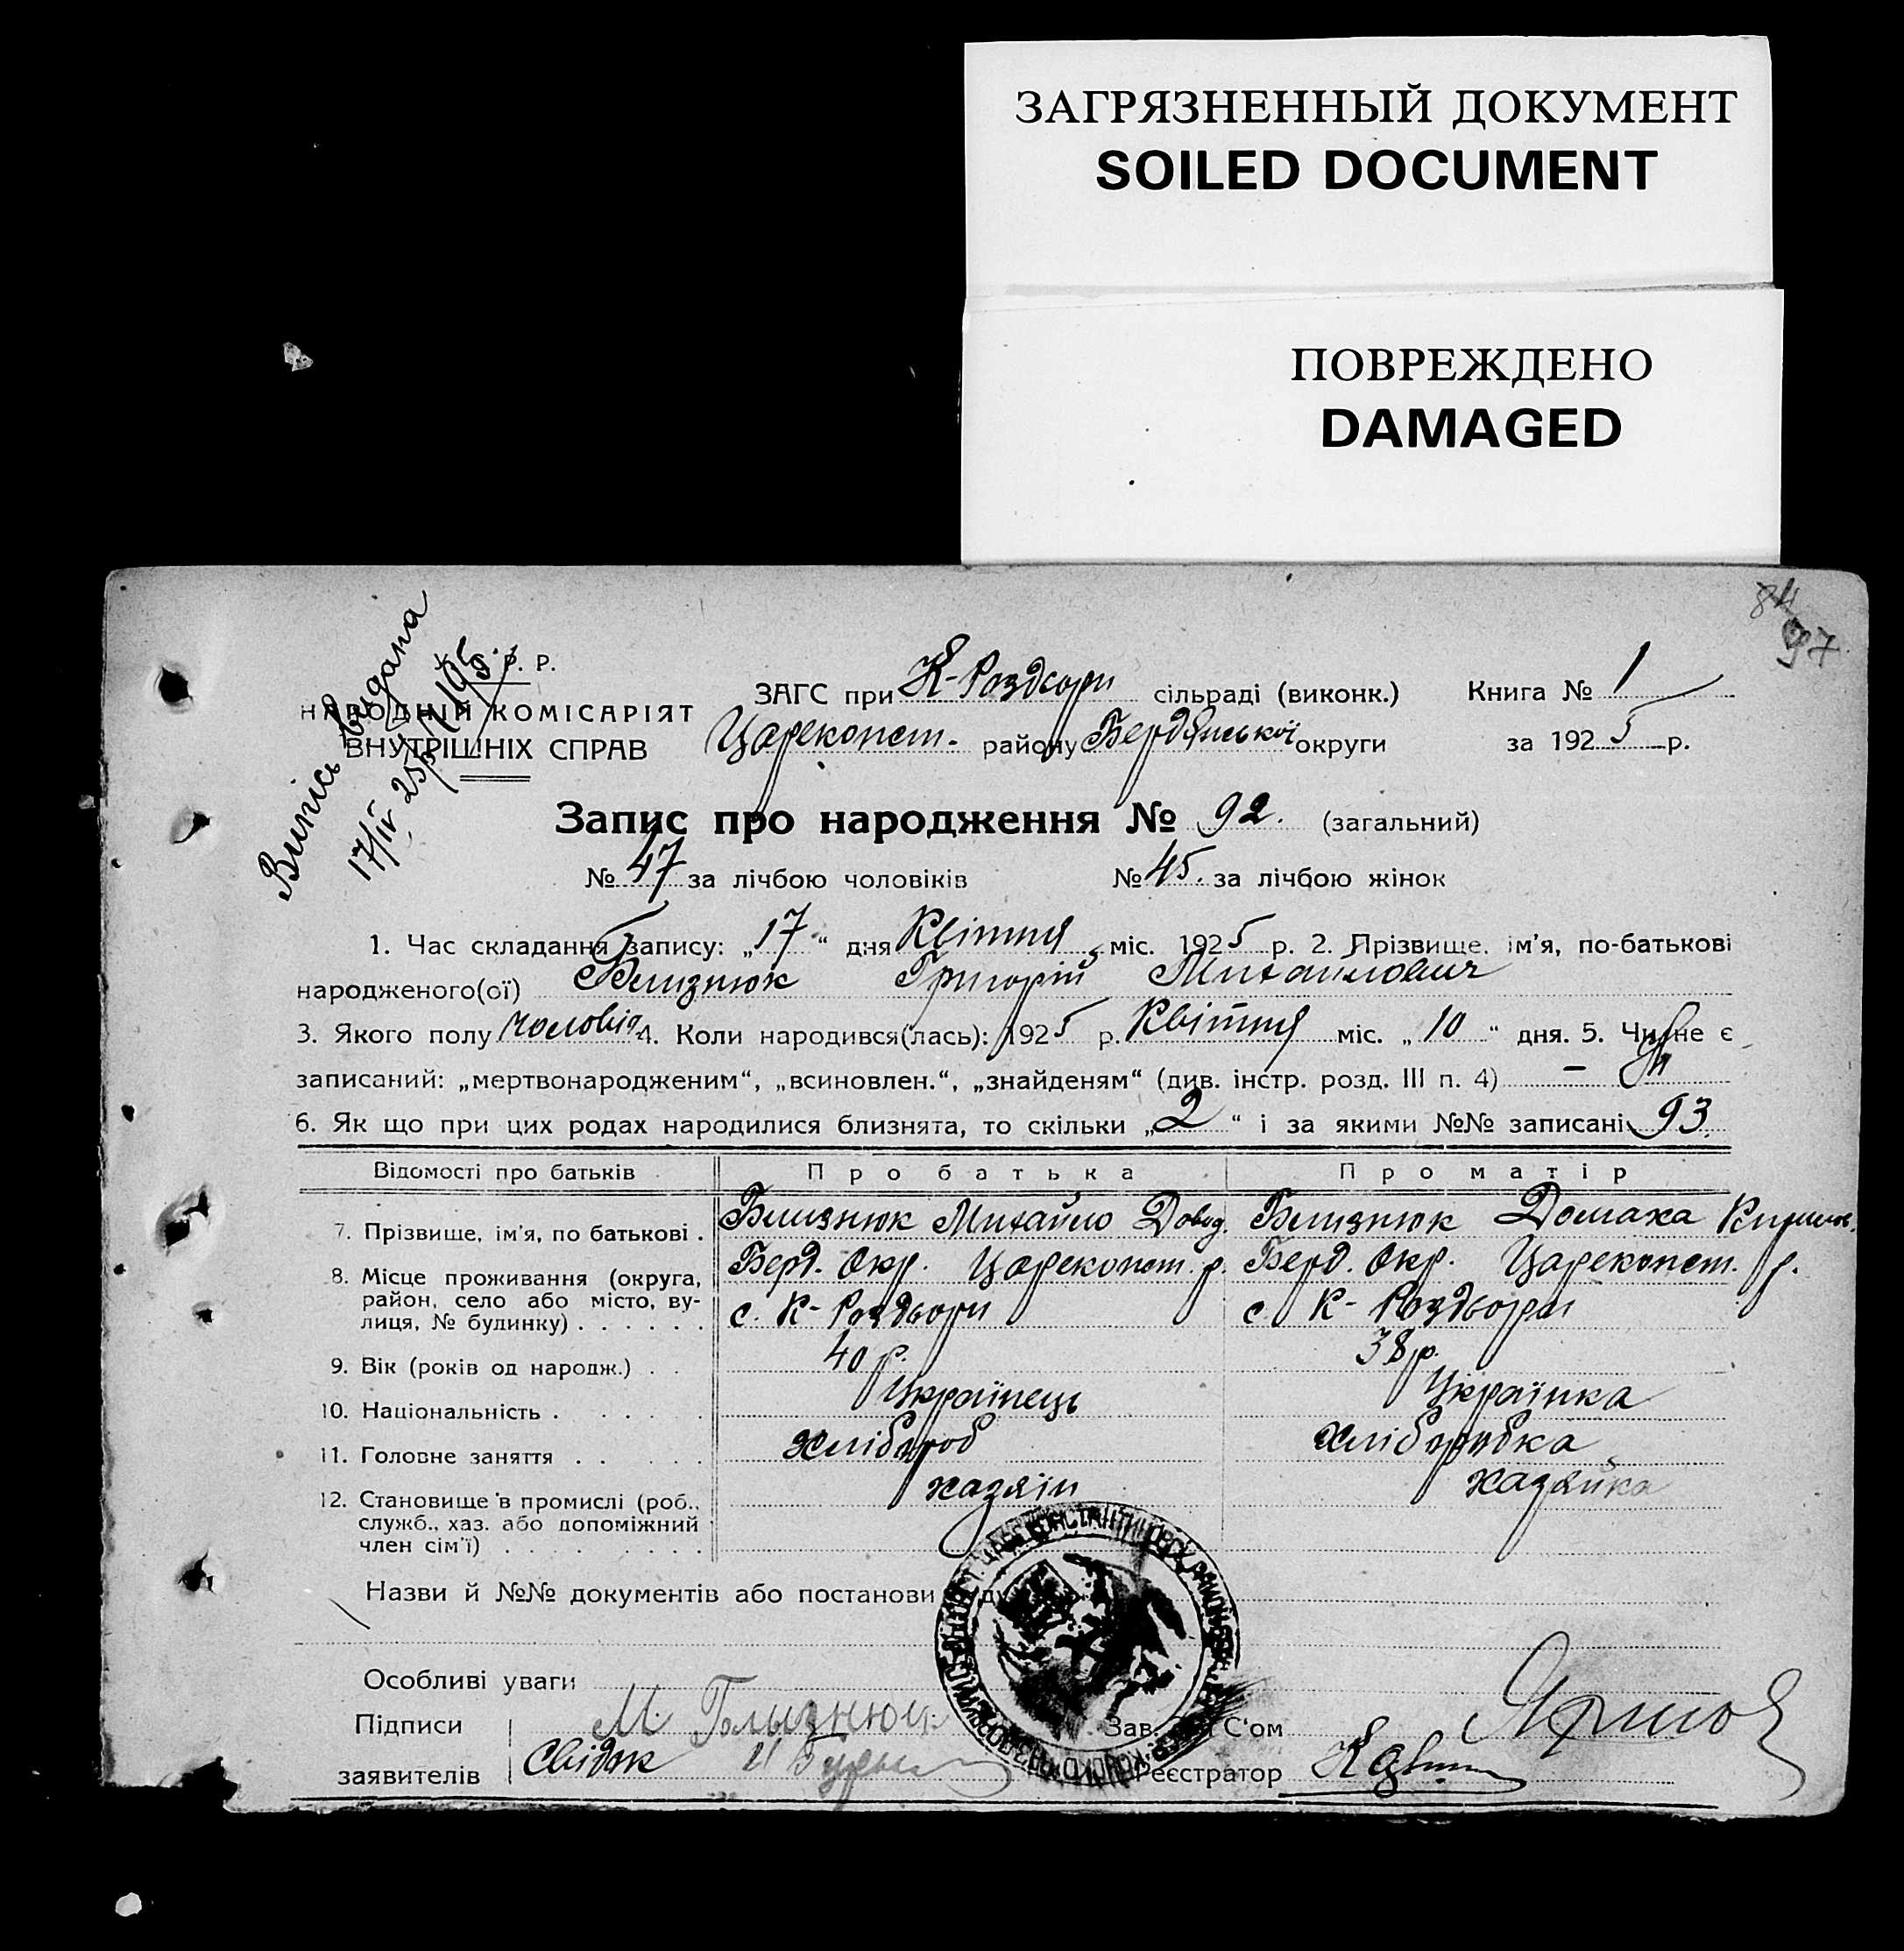 ЗАГРЯЗНЕННЫЙ ДОКУМЕНТ
SOILED DOCUMENT
ПОВРЕЖДЕНО
DAMAGED
84
97
Випісь видана
17/IV 25
У. С. Р. Р.
НАРОДНІЙ КОМІСАРІЯТ
ВНУТРІШНІХ СПРАВ
ЗАГС при К-Роздори сільраді (виконк.) Книга № 1
Цареконст. району Бердянської округи за 1925 р.
Запис про народження № 92. (загальний)
№ 47 за лічбою чоловіків № 45. за лічбою жінок
1. Час складання запису: „17“ дня Квітня міс. 1925 р. 2. Прізвище, ім'я, по-батькові
народженого(ої) Близнюк Григорій Михаилович
3. Якого полу чоловіч 4. Коли народився(лась): 1925 р. Квітня міс. „10“ дня. 5. Чи не є
записаний: „мертвонародженим“, „всиновлен.“, „знайденям“ (див. інстр. розд. III п. 4) –
6. Як що при цих родах народилися близнята, то скільки „2“ і за якими №№ записані 93.
Відомості про батьків Про батька Про матір
7. Прізвище, ім'я, по батькові . Близнюк Михайло Давид. Близнюк Домаха Кирилов.
8. Місце проживання (округа, район, село або місто, вулиця, № будинку) . . . . . . Берд. Окр. Цареконст. р. с. К-Роздори Берд. Окр. Цареконст. р. с К-Роздори
9. Вік (років од народж.) . . 40 р. 38 р.
10. Національність . . . . . . Українець Українка
11. Головне заняття . . . . . Хлібороб Хліборобка
12. Становище в промислі (роб., служб., хаз. або допоміжний член сім'ї) . . . . . . . . хазяїн хазяйка
Назви й №№ документів або постанови
Особливі уваги
Підписи М. Близнюк Зав. С'ом
заявителів Свідок Реєстратор